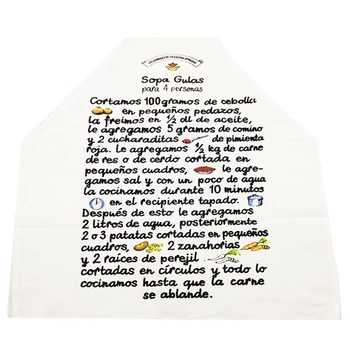 Sopa Gulas
para 4 personas
Cortamos 100 gramos de cebolla
en pequeños pedazos,
la freímos en ½ dl de aceite,
le agregamos 5 gramos de comino
y 2 cucharaditas de pimienta
roja. Le agregamos ½ kg de carne
de res o de cerdo cortada en
pequeños cuadros, le agre-
gamos sal y con un poco de agua
la cocinamos durante 10 minutos
en el recipiente tapado.
Después de esto le agregamos
2 litros de agua, posteriormente
2 o 3 patatas cortadas en pequeños
cuadros, 2 zanahorias
y 2 raíces de perejil
cortadas en círculos y todo lo
cocinamos hasta que la carne
se ablande.